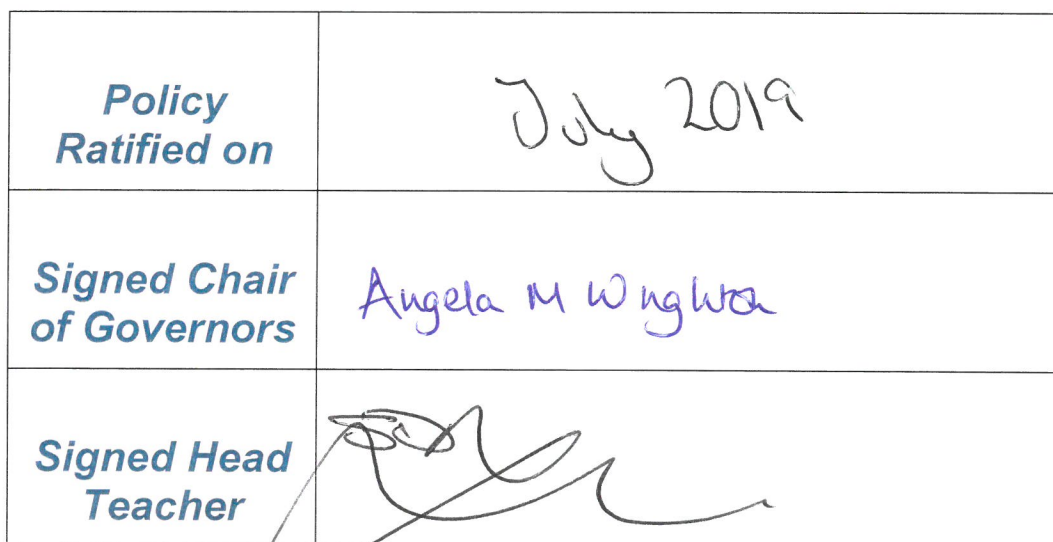 Policy
Ratified on
July 2019
Signed Chair
of Governors
Angela M
Signed Head
Teacher